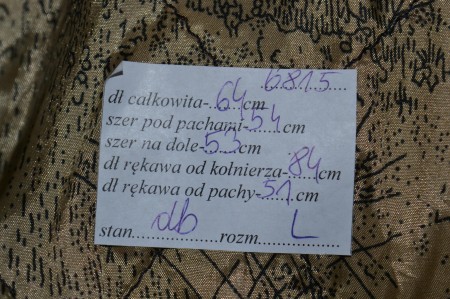 6815
dł całkowita-64cm
szer pod pachami-54cm
szer na dole-53cm
dł rękawa od kołnierza-84cm
dł rękawa od pachy-51cm
stan db rozm L